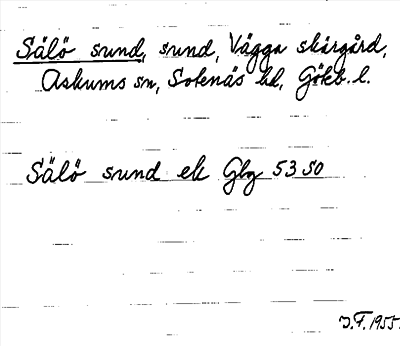 Sälö sund, sund, Vägga skärgård,
Askums sn, Sotenäs hd, Göteb. l.
Sälö sund ek Gbg 53 SO
J.F. 1955.